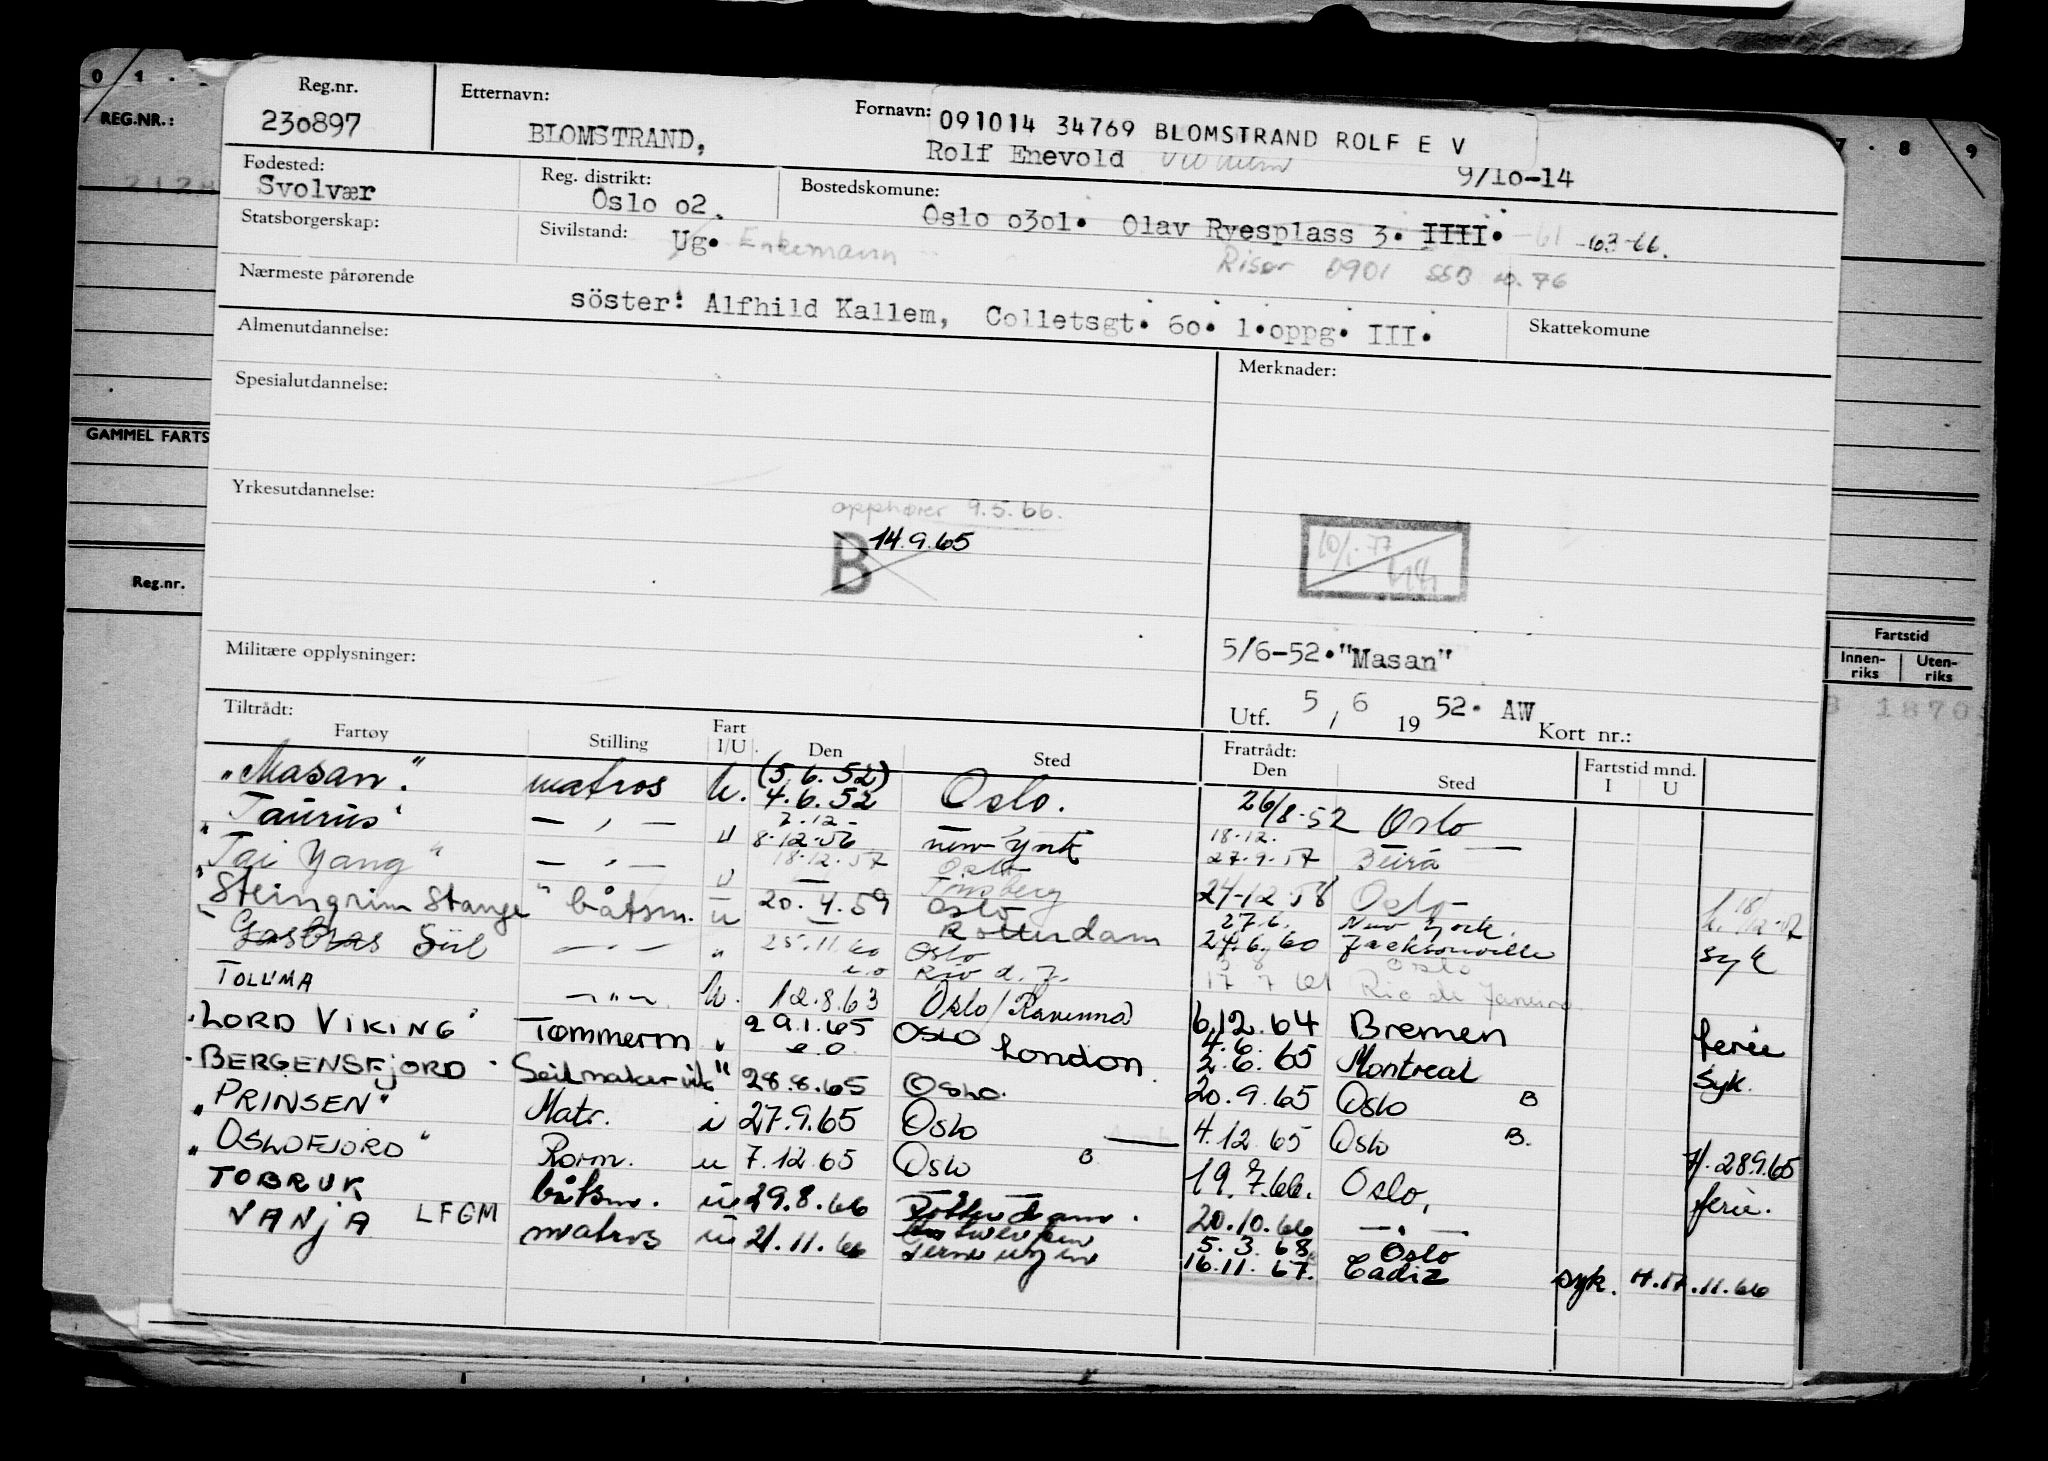 0 1 .
7 . 8 9
REG.NR.:
Reg.nr.
Etternavn:
Fornavn: 091014 34769 BLOMSTRAND ROLF E V
230897
BLOMSTRAND,
Rolf Enevold
9/10-14
Fødested:
Svolvær
Reg. distrikt:
Oslo o2.
Bostedskomune:
Oslo o3o1. Olav Ryesplass 3. IIII. -61 -63-66.
Statsborgerskap:
Sivilstand:
Ug. Enkemann
Risør 0901 SSB 76
Nærmeste pårørende
söster: Alfhild Kallem, Colletsgt. 60. 1.oppg. III.
Skattekomune
Almenutdannelse:
Merknader:
Spesialutdannelse:
GAMMEL FARTS
Yrkesutdannelse:
opphører 9.5.66.
B 14.9.65
10/1-77
Reg.nr.
Militære opplysninger:
5/6-52."Masan"
Fartstid
Innenriks
Utenriks
1870
Utf. 5 / 6 19 52. AW
Kort nr.:
Tiltrådt:
Fratrådt:
Fartøy Stilling Fart I/U Den Sted Den Sted Fartstid mnd. I U
"Masan." matros (5.6.52) 4.6.52 Oslo. 26/8-52 Oslo
"Taurus" — " — u 7.12- 8-12-56 new York 18-12. 27-9-57 Beira
"Tai Yang" — " — u 18-12-57 Oslo Tønsberg 24-12-58 Oslo
"Steingrim Stange" båtsm. u 20.4.59 Oslo Rotterdam 27.6. New York. 24.6.60 Jacksonville syk
Sül — " — " 25.11.60 Oslo Rio d. J. 17 7 61 Oslo Rio de Janeiro
TOLUMA — " — 12.8.63 Oslo/Ravenna 6.12.64 Bremen ferie
"LORD VIKING" Tømmerm " 29.1.65 Oslo London. 4.6. 2.6.65 Montreal syk.
"BERGENSFJORD" Seilmaker vik " 28.8.65 Oslo. 20.9.65 Oslo B
"PRINSEN" Matr. i 27.9.65 Oslo 4.12.65 Oslo B. 28.9.65
"OSLOFJORD" Rorm. u 7.12.65 Oslo B 19.7.66. Oslo, ferie.
TOBRUK båtsm. u 29.8.66 Rotterdam. 20.10.66 — " —
VANJA LFGM matros u 21.11.66 Antwerpen Terneuzen 5.3.68 Oslo 16.11.67. Cadiz syk. 11.66